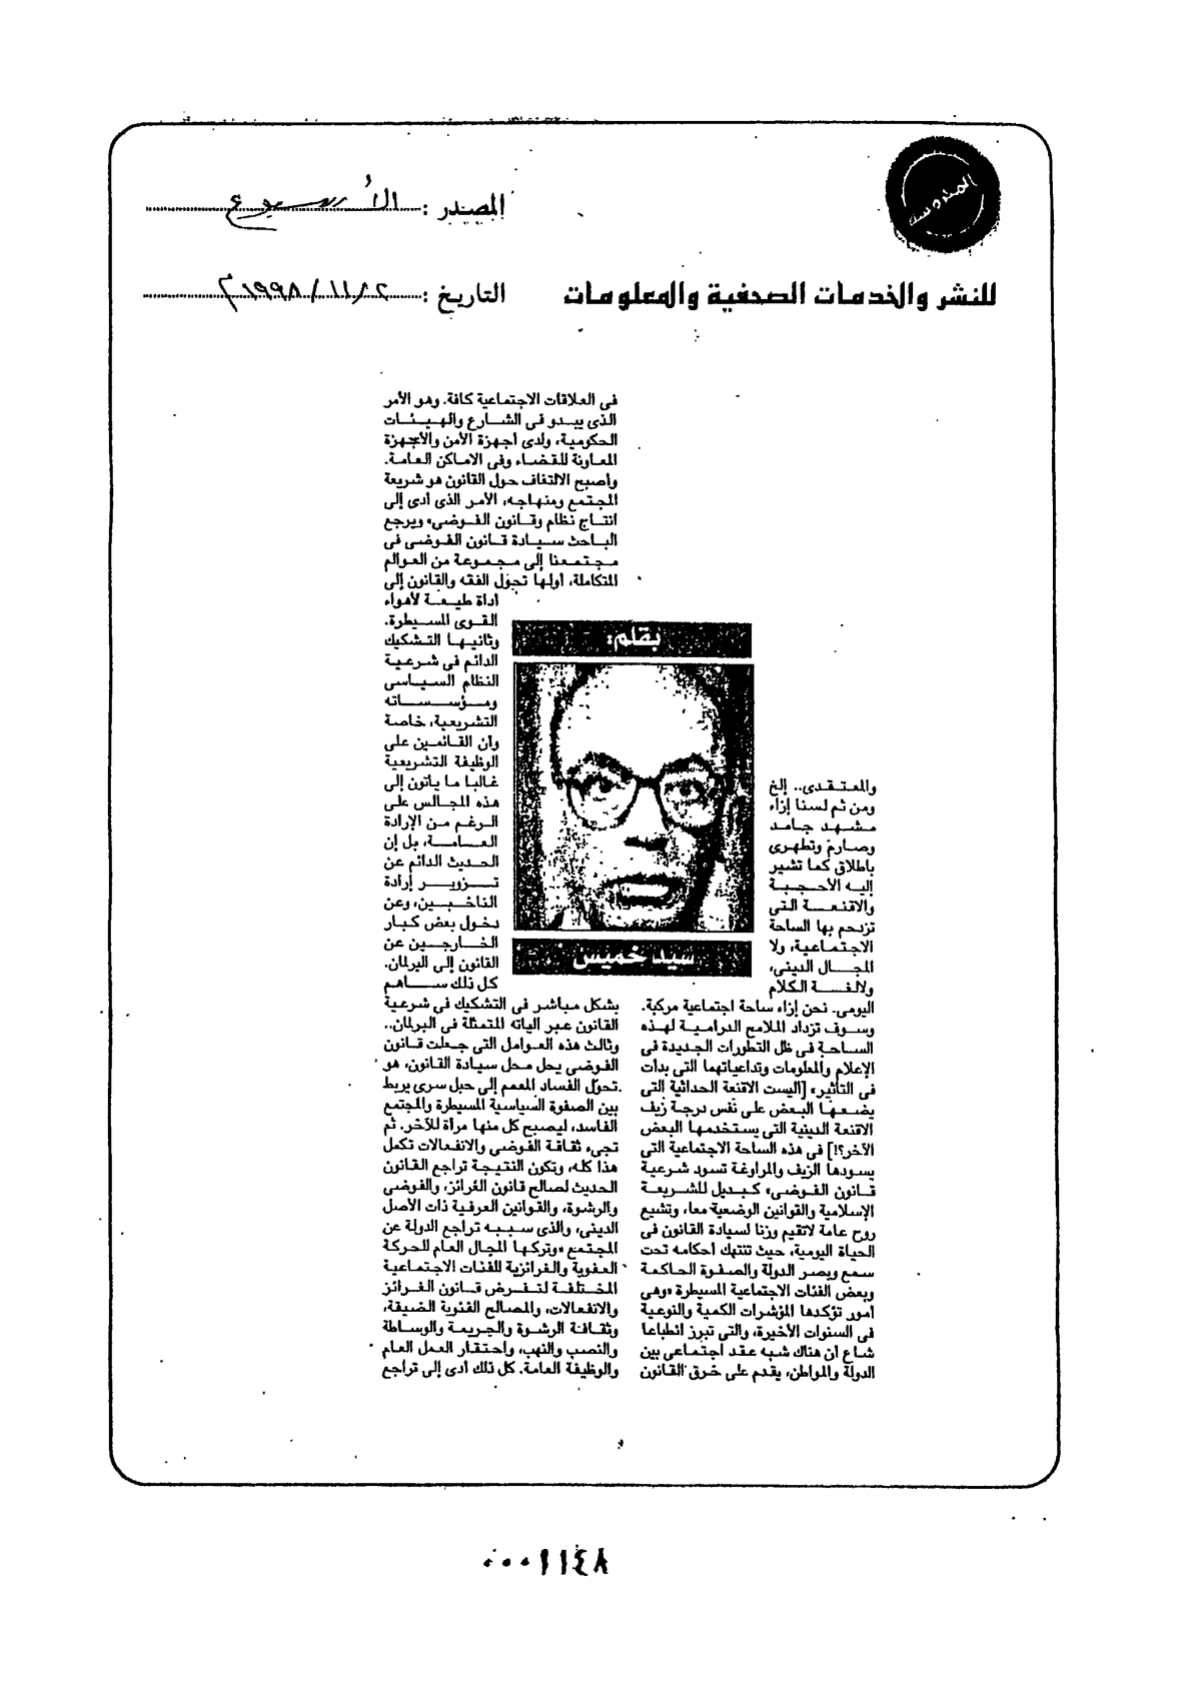 المصدر : الأسبوع
للنشر والخدمات الصحفية والمعلومات
التاريخ : ٢ / ١١ / ١٩٩٨
بقلم:
سيد خميس
والمعتقدى.. إلخ
ومن ثم لسنا إزاء
مشهد جامد
وصارم وتطهرى
باطلاق كما تشير
إليه الأحجبة
والاقنعة التى
تزدحم بها الساحة
الاجتماعية، ولا
المجال الدينى،
ولالغة الكلام
اليومى. نحن إزاء ساحة اجتماعية مركبة.
وسوف تزداد الملامح الدرامية لهذه
الساحة فى ظل التطورات الجديدة فى
الإعلام والمعلومات وتداعياتهما التى بدأت
فى التأثير» [اليست الاقنعة الحداثية التى
يضعها البعض على نفس درجة زيف
الاقنعة الدينية التى يستخدمها البعض
الآخر؟!] فى هذه الساحة الاجتماعية التى
يسودها الزيف والمراوغة تسود شرعية
قانون الفوضى» كبديل للشريعة
الإسلامية والقوانين الوضعية معا، وتشيع
روح عامة لاتقيم وزنا لسيادة القانون فى
الحياة اليومية، حيث تنتهك أحكامه تحت
سمع وبصر الدولة والصفوة الحاكمة
وبعض الفئات الاجتماعية المسيطرة «وهى
أمور تؤكدها المؤشرات الكمية والنوعية
فى السنوات الأخيرة، والتى تبرز انطباعا
شاع أن هناك شبه عقد اجتماعى بين
الدولة والمواطن، يقدم على خرق القانون
فى العلاقات الاجتماعية كافة. وهو الأمر
الذى يبدو فى الشارع والهيئات
الحكومية، ولدى أجهزة الأمن والأجهزة
المعاونة للقضاء وفى الاماكن العامة.
وأصبح الالتفاف حول القانون هو شريعة
المجتمع ومنهاجه، الأمر الذى أدى إلى
انتاج نظام وقانون الفوضى» ويرجع
الباحث سيادة قانون الفوضى فى
مجتمعنا إلى مجموعة من العوالم
المتكاملة، أولها تحول الفقه والقانون إلى
أداة طيعة لأهواء
القوى المسيطرة.
وثانيها التشكيك
الدائم فى شرعية
النظام السياسى
ومؤسساته
التشريعية، خاصة
وأن القائمين على
الوظيفة التشريعية
غالبا ما يأتون إلى
هذه المجالس على
الرغم من الإرادة
العامة، بل إن
الحديث الدائم عن
تزوير إرادة
الناخبين، وعن
دخول بعض كبار
الخارجين عن
القانون إلى البرلمان.
كل ذلك ساهم
بشكل مباشر فى التشكيك فى شرعية
القانون عبر الياته المتمثلة فى البرلمان..
وثالث هذه العوامل التى جعلت قانون
الفوضى يحل محل سيادة القانون، هو
تحول الفساد المعمم إلى حبل سرى يربط
بين الصفوة السياسية المسيطرة والمجتمع
الفاسد، ليصبح كل منها مرآة للآخر. ثم
تجىء ثقافة الفوضى والانفعالات تكمل
هذا كله، وتكون النتيجة تراجع القانون
الحديث لصالح قانون الغرائز، والفوضى
والرشوة، والقوانين العرفية ذات الأصل
الدينى، والذى سببه تراجع الدولة عن
المجتمع «وتركها المجال العام للحركة
العفوية والغرائزية للفئات الاجتماعية
المختلفة لتفرض قانون الغرائز
والانفعالات، والمصالح الفئوية الضيقة،
وثقافة الرشوة والجريمة والوساطة
والنصب والنهب، واحتقار العمل العام
والوظيفة العامة. كل ذلك أدى إلى تراجع
٠٠٠٩١٤٨